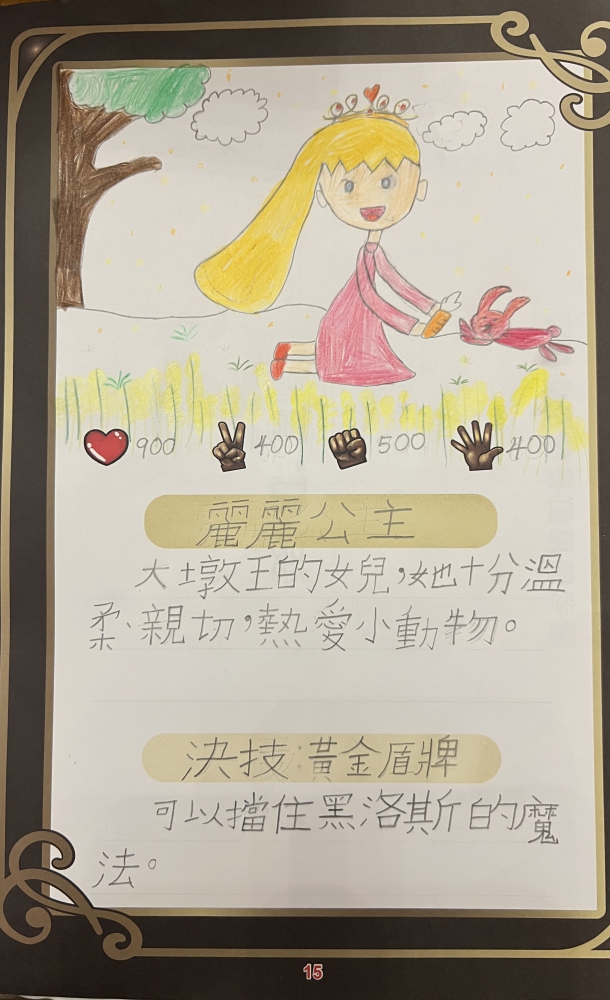 900 400 500 400
麗麗公主
大墩王的女兒，她十分溫
柔、親切，熱愛小動物。
決技：黃金盾牌
可以擋住黑洛斯的魔
法。
15